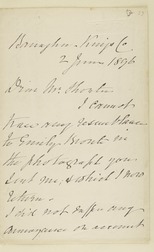 2 June 1896
Dear Mr. Shorter
I cannot
trace any resemblance
to Emily Brontë in
the photograph you
sent me, & which I now
return.
I did not suffer any
annoyance on account